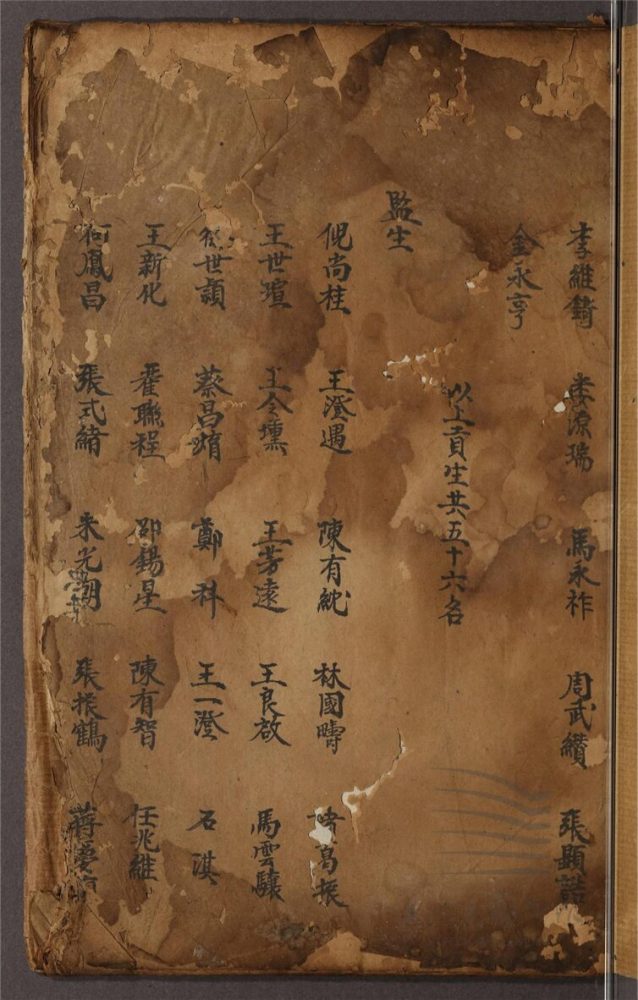 李維錡 婁潦瑞 馬永祚 周武纘 張顯喆
金永亨
以上貢生共五十六名
監生
倪尚桂 王澄遇 陳有紞 林國疇 諸葛振
王世瑄 王令壎 王芳遠 王良啟 馬雲驤
世顯 蔡昌 鄭科 王一澄 石淇
王新化 翟聯程 邵錫星 陳有智 任兆維
何鳳昌 張式緒 朱光朝 張振鶴 蔣